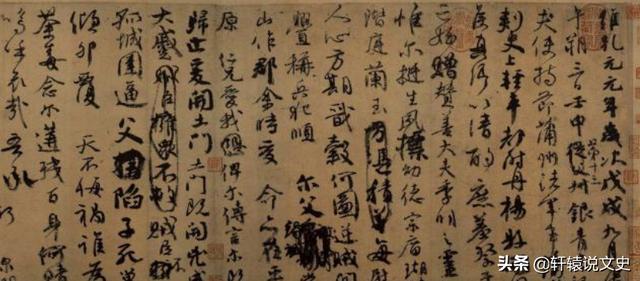 維乾元元年歲次戊戌九月
午朔三日壬申第十三叔銀青
夫使持節蒲州諸軍事
刺史上輕車都尉丹楊縣
侯真卿以清酌庶羞祭
亡姪贈贊善大夫季明之靈
惟爾挺生夙標幼德宗廟瑚
階庭蘭玉每慰
人心方期戩穀何圖逆賊
釁稱兵犯順爾父
山作郡余時受命亦在平
原仁兄愛我俾爾傳言爾
歸止爰開土門土門既開凶威
大蹙賊臣不
孤城圍逼父陷子死
傾卵覆天不悔禍誰為
荼毒念爾遘殘百身何
嗚呼哀哉吾承
头条 @轩辕说文史